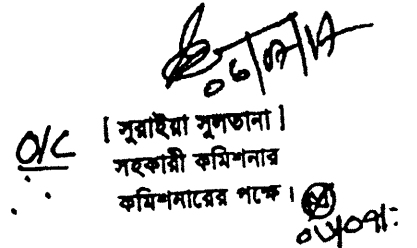 O/C
[ সুরাইয়া সুলতানা ]
সহকারী কমিশনার
কমিশনারের পক্ষে ।